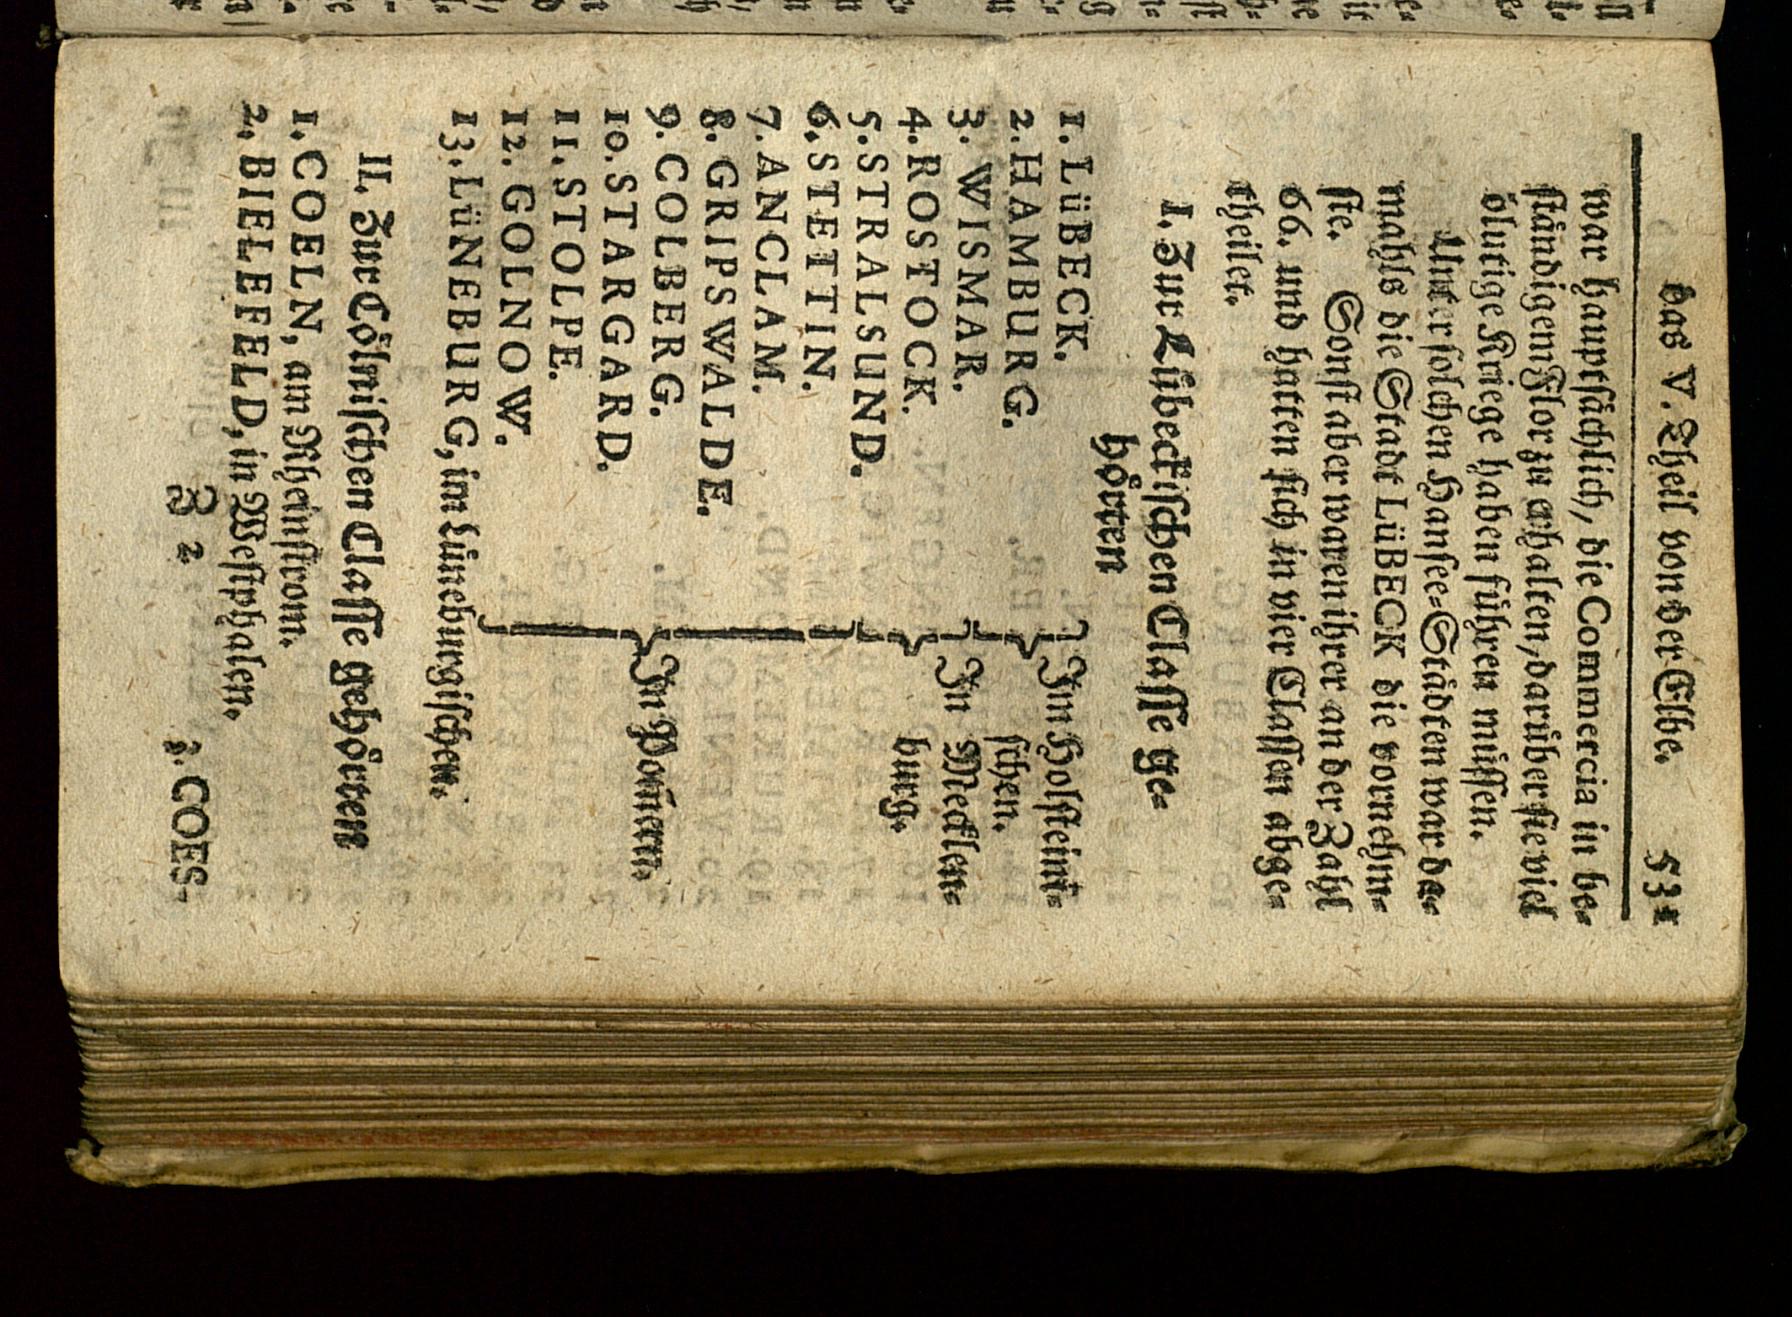 das V. Theil von der Elbe. 531
war hauptsächlich, die Commercia in be-
ständigem Flor zu erhalten, darüber sie viel
blutige Kriege haben führen müssen.
Unter solchen Hansee-Städten war da-
mahls die Stadt LüBECK die vornehm-
ste. Sonst aber waren ihrer an der Zahl
66. und hatten sich in vier Classen abge-
theilet.
I. Zur Lübeckischen Classe ge-
hörten
1. LüBECK.
2. HAMBURG.
Im Holsteini-
schen.
3. WISMAR.
4. ROSTOCK.
In Mecklen-
burg.
5. STRALSUND.
6. STETTIN.
7. ANCLAM.
8. GRIPSWALDE.
9. COLBERG.
10. STARGARD.
11. STOLPE.
12. GOLNOW.
In Pom̃ern.
13. LüNEBURG, im Lüneburgischen.
II. Zur Cölnischen Classe gehörten
1. COELN, am Rheinstrom.
2. BIELEFELD, in Westphalen.
3 2 3. COES-